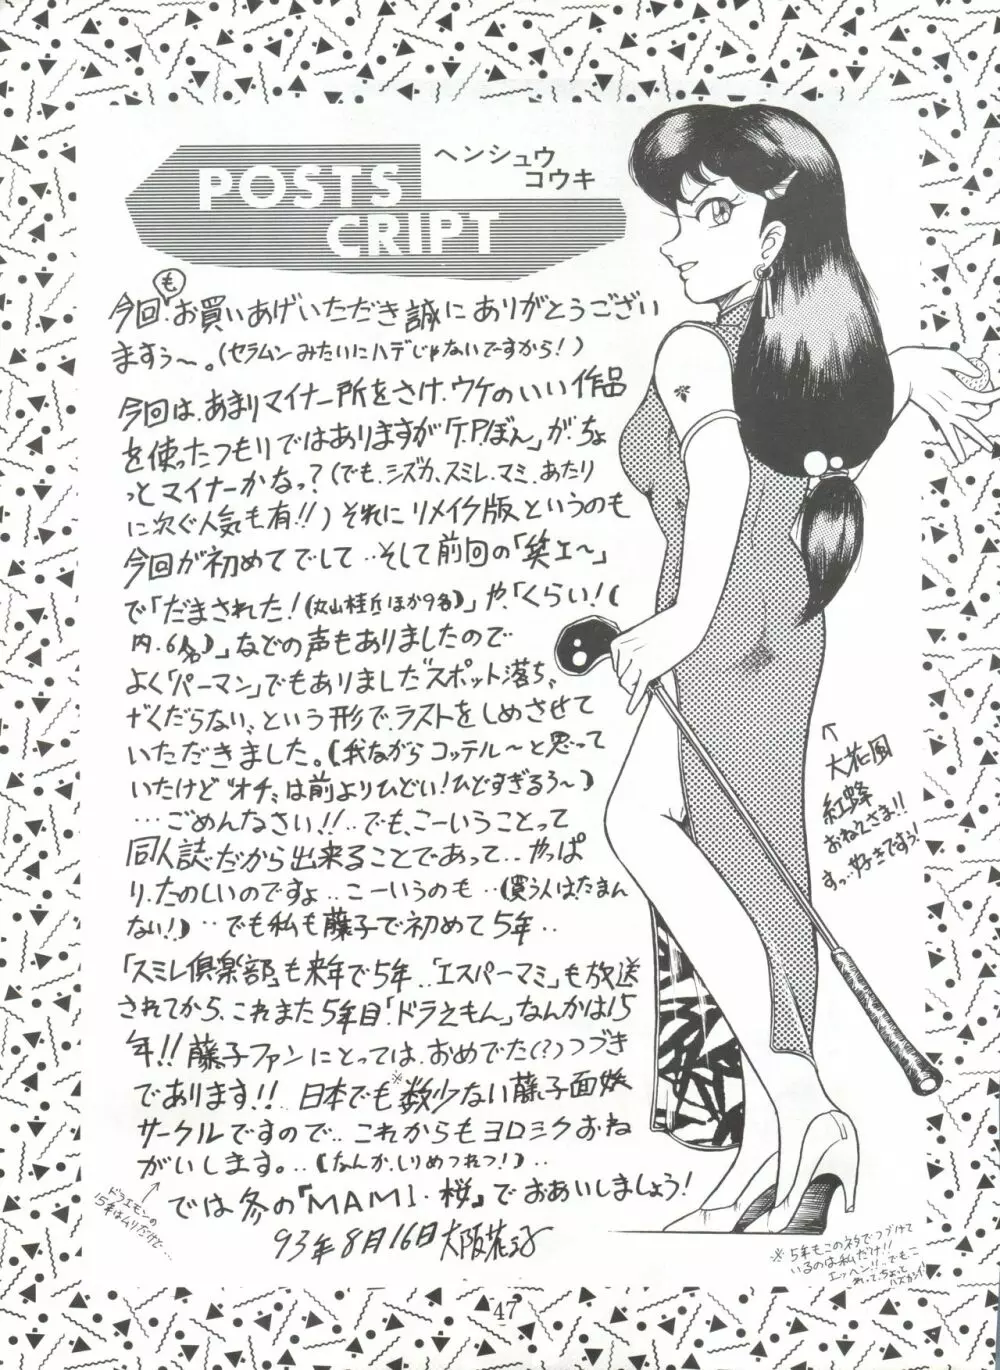 POSTS
CRIPT
ヘンシュウ
コウキ
今回もお買いあげいただき誠にありがとうござい
ますぅ〜。(セラムンみたいにハデじゃないですから!)
今回は、あまりマイナー所をさけ、ウケのいい作品
を使ったつもりではありますが「T.Pぼん」が、ちょ
っとマイナーかなっ?(でも、シズカ、スミレ、マミ、あたり
に次ぐ人気も有!!)それにリメイク版というのも
今回が初めてでして‥そして前回の「笑ェ〜」
で「だまされた!(丸山桂丘ほか9名)」や、「くらい!(
内、6名)」などの声もありましたので
よく「パーマン」でもありました“スポット落ち、
がくだらない、という形で、ラストをしめさせて
いただきました。(我ながらコッテル〜と思って
いたけど“オチ、は前よりひどい!ひどすぎるぅ〜)
…ごめんなさい!!‥でも、こーいうことって
同人誌だから出来ることであって‥やっぱ
り、たのしいのですょ‥こーいうのも‥(買う人はたまん
ない!)‥でも私も藤子で初めて5年‥
「スミレ倶楽部」も来年で5年‥「エスパーマミ」も放送
されてから、これまた5年目「ドラえもん」なんかは15
年!!藤子ファンにとっては、おめでた(?)つづき
であります!!‥日本でも※数少ない藤子面妖
サークルですので‥これからもヨロシクおね
がいします。‥(なんか、しりめつれつ!)‥
では冬の『MAMI・桜』でおあいしましょう!
'93年8月16日大阪花子
ドラエモンの
15年はムリだけど…
↑
大花風
紅蜂
おねえさま!!
すっ‥好きですぅ!
※5年もこのネタでつづけて
いるのは私だけ!!
エッヘン!!‥でもこ
れって、ちょって
ハズカシイ
47